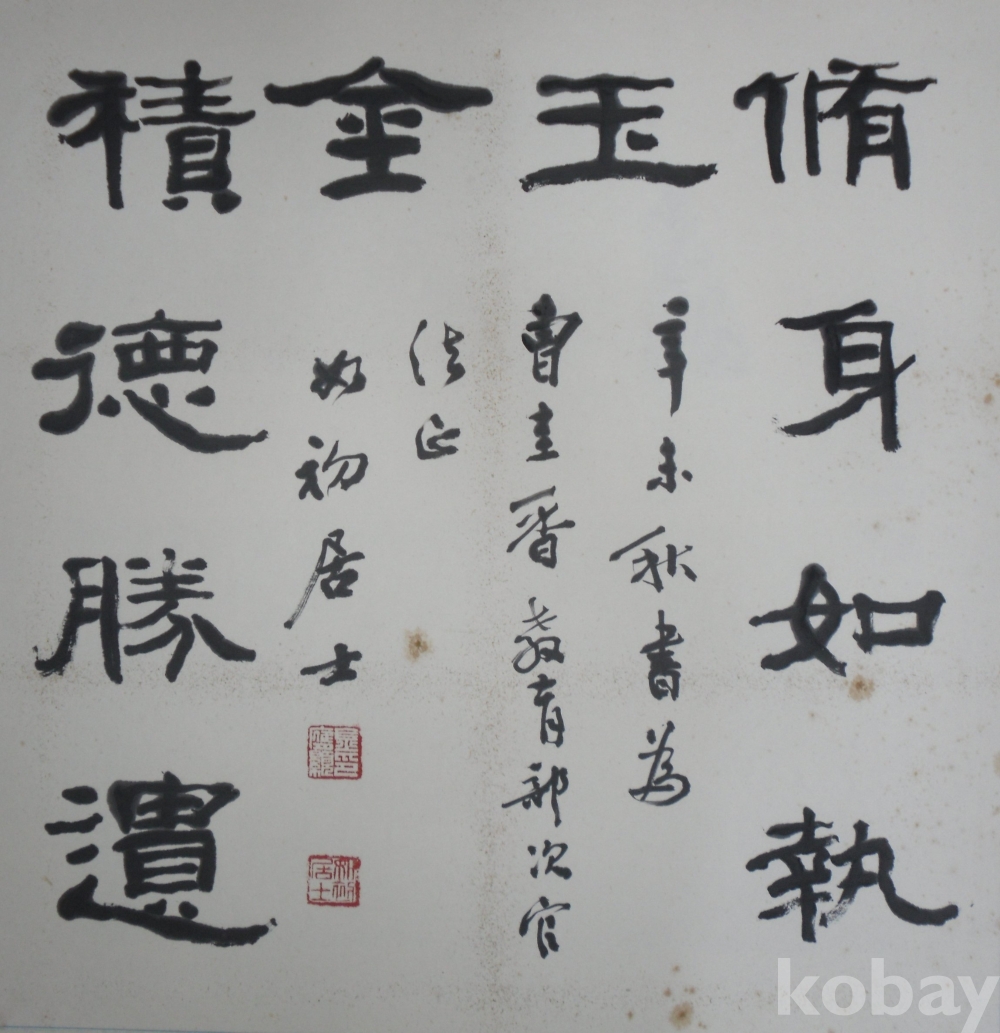 脩身如執
玉
辛未秋書為
曺圭香教育部次官
法正
金
如初居士
積德勝遺
kobay